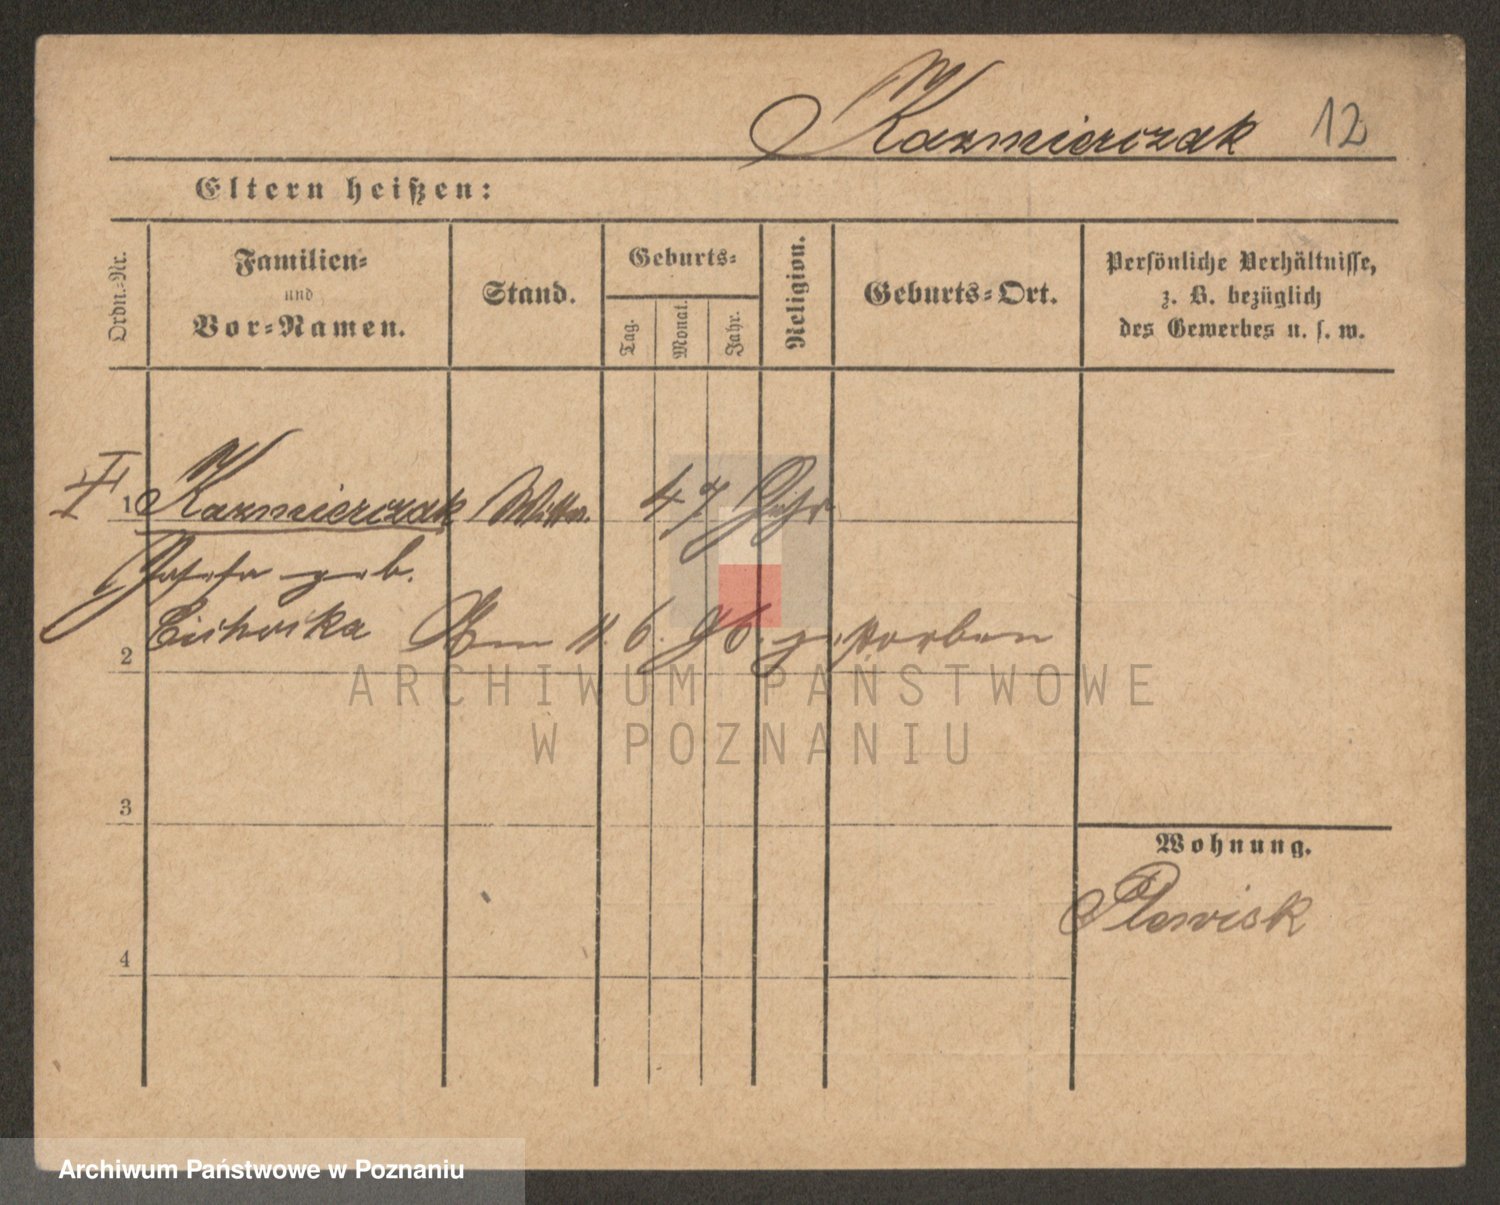 Kazmierczak 12
Eltern heißen:
Ordn.-Nr.
Familien-
und
Vor-Namen.
Stand.
Geburts-
Tag.
Monat.
Jahr.
Religion.
Geburts-Ort.
Persönliche Verhältnisse,
z. B. bezüglich
des Gewerbes u. s. w.
1 Kazmierczak 47 Jahr
Josefa geb.
Am 11. 6. 96. gestorben
2
ARCHIWUM PAŃSTWOWE
W POZNANIU
3
Wohnung.
Plewisk
4
Archiwum Państwowe w Poznaniu